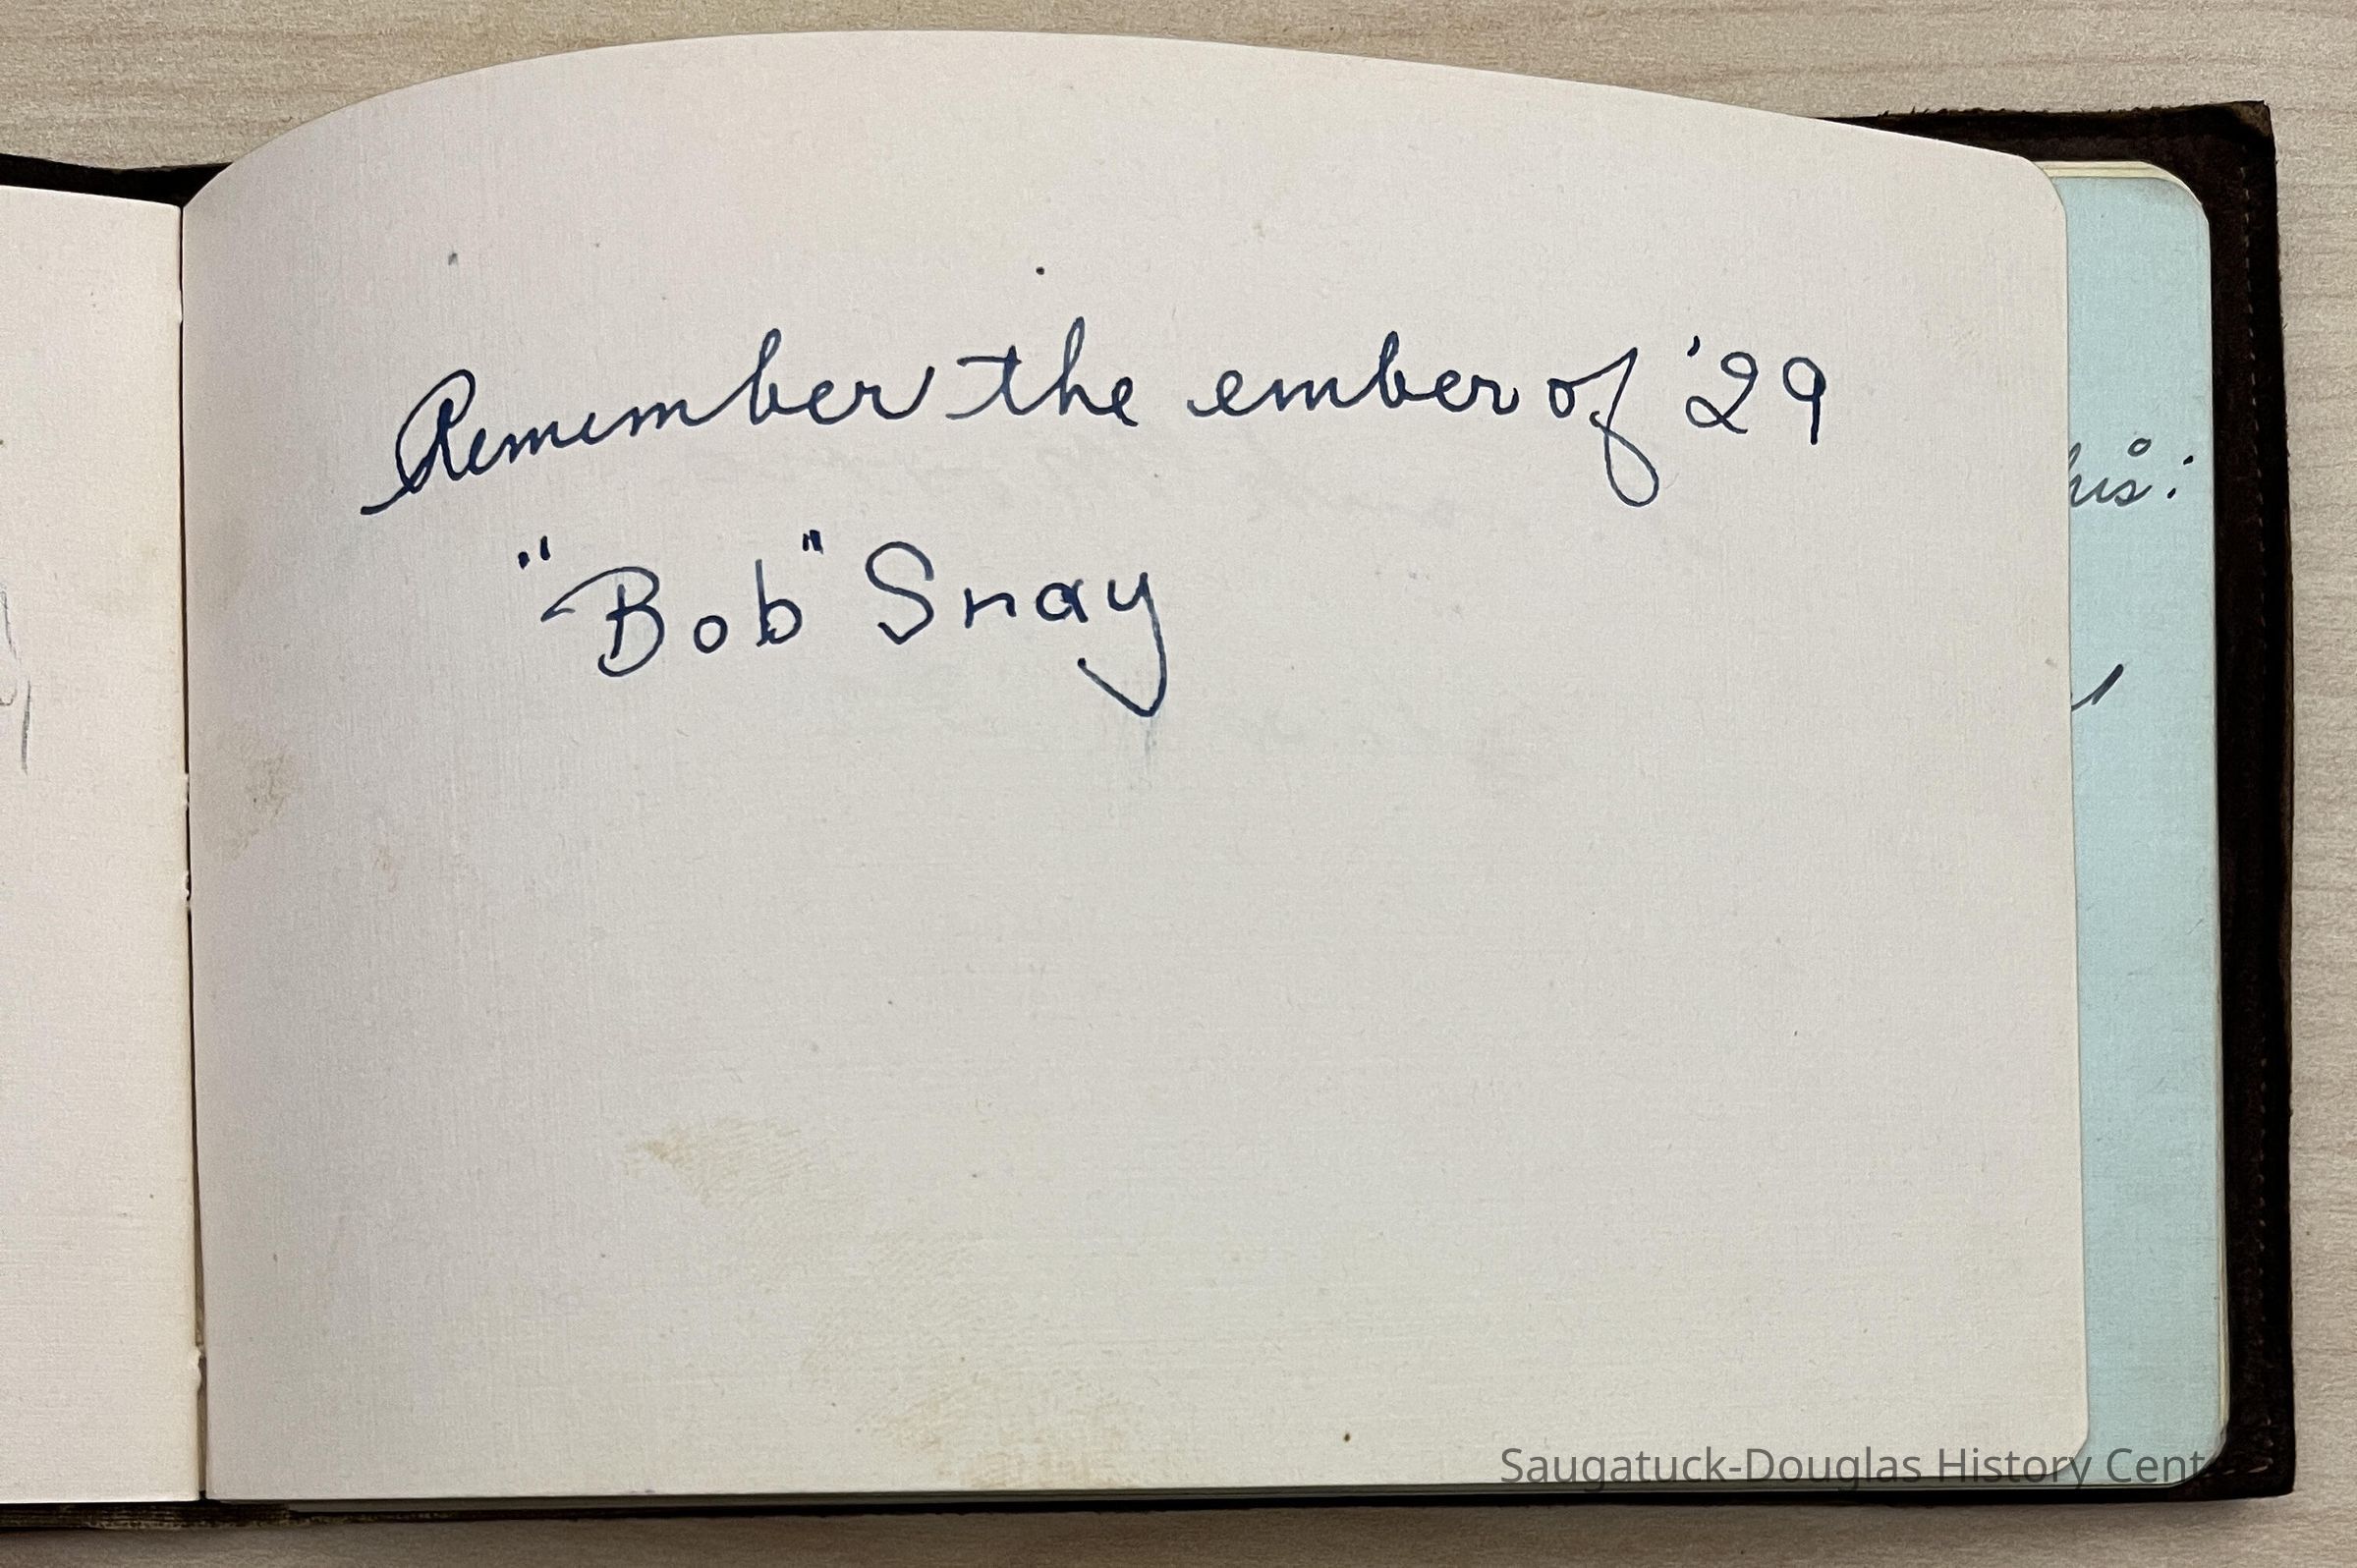 Remember the ember of '29
"Bob" Snay
his:
Saugatuck-Douglas History Cent